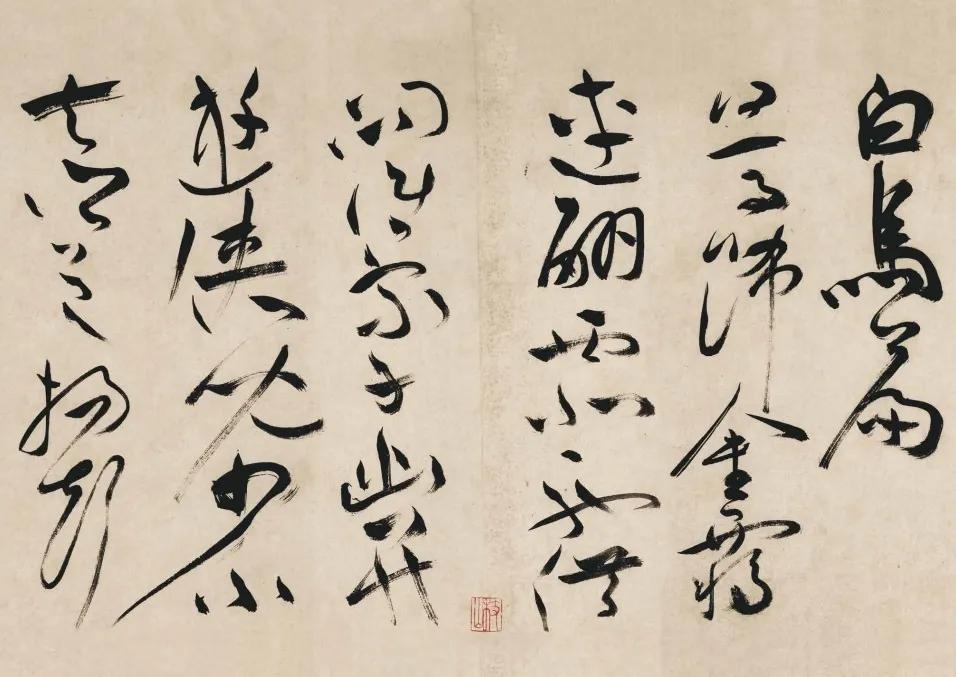 白馬篇
白馬飾金羈
連翩西北馳借
問誰家子幽并
遊俠兒少小
去鄉邑揚聲
枝山